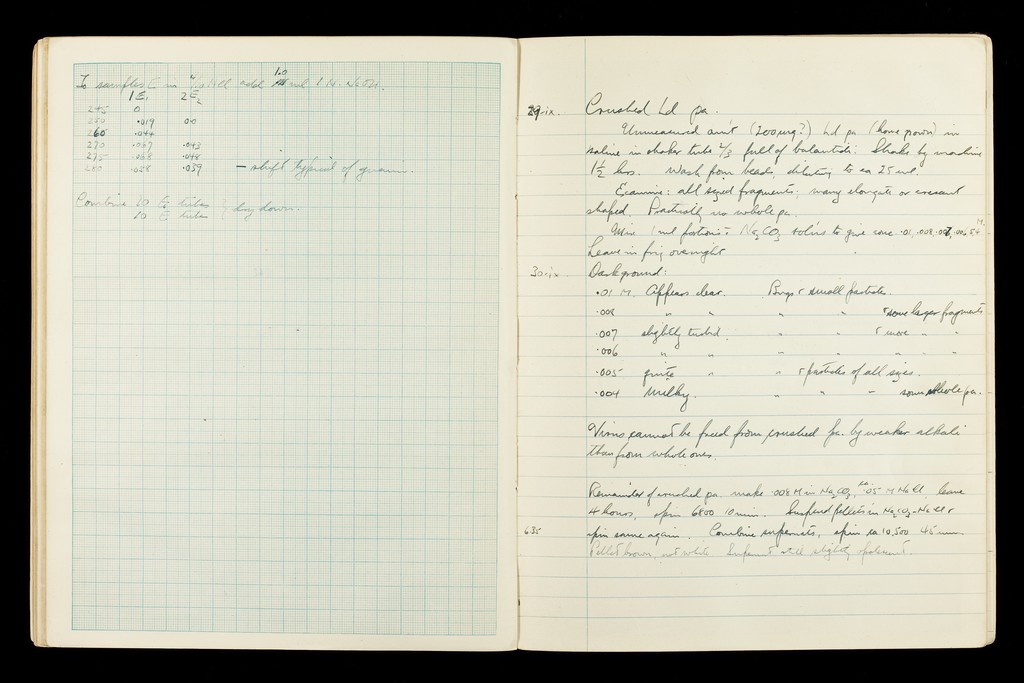 To samples E in N/10 HCl add 1.0 ml 1 N. NaOH.
1E1 2E2
245 0
250 .019 00
260 .044
270 .067 .043
275 .068 .048
280 .058 .039 — shift typical of guanine.
Combine 10 E tubes } dry down.
10 E tubes
29.ix. Crushed Ld pa.
Unmeasured am't (200 mg?) Ld pa (home grown) in
saline in shaker tube 2/3 full of ballotini. Shake by machine
1½ hrs. Wash from beads, diluting to ca 25 ml.
Examine: all sized fragments, many elongate or crescent
shaped. Practically no whole pa.
Mix 1 ml portions + Na2CO3 sol'ns to give conc .01, .008, .007, .006, 5, 4 M.
Leave in frig overnight
30.ix. Darkground:
.01 M. Appears clear. Bungs + small particles.
.008 " " " " + some larger fragments
.007 slightly turbid. " " + more " "
.006 " " " " " " "
.005 quite " " + particles of all sizes.
.004 milky. " " " some whole pa.
Virus cannot be freed from crushed pa. by weaker alkali
than from whole ones.
Remainder of crushed pa. make .008 M in Na2CO3, ca .05 M NaCl, leave
4 hours, spin 6800 10 min. Suspend pellets in Na2CO3-NaCl +
635 spin same again. Combine supernats, spin ca 10,500 45 min.
Pellet brown, not white. Supernat still slightly opalescent.